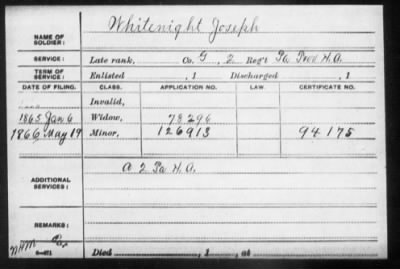 Whitenight Joseph
NAME OF
SOLDIER:
SERVICE:
Late rank, Co. G, 2 Reg't Pa Prov. H.A.
TERM OF
SERVICE:
Enlisted , 1 Discharged , 1
DATE OF FILING. CLASS. APPLICATION NO. LAW. CERTIFICATE NO.
Invalid,
1865 Jan 6 Widow, 78296
1866 May 19 Minor, 126913 94175
A 2 Pa H.A.
ADDITIONAL
SERVICES:
REMARKS:
Died , 1 , at